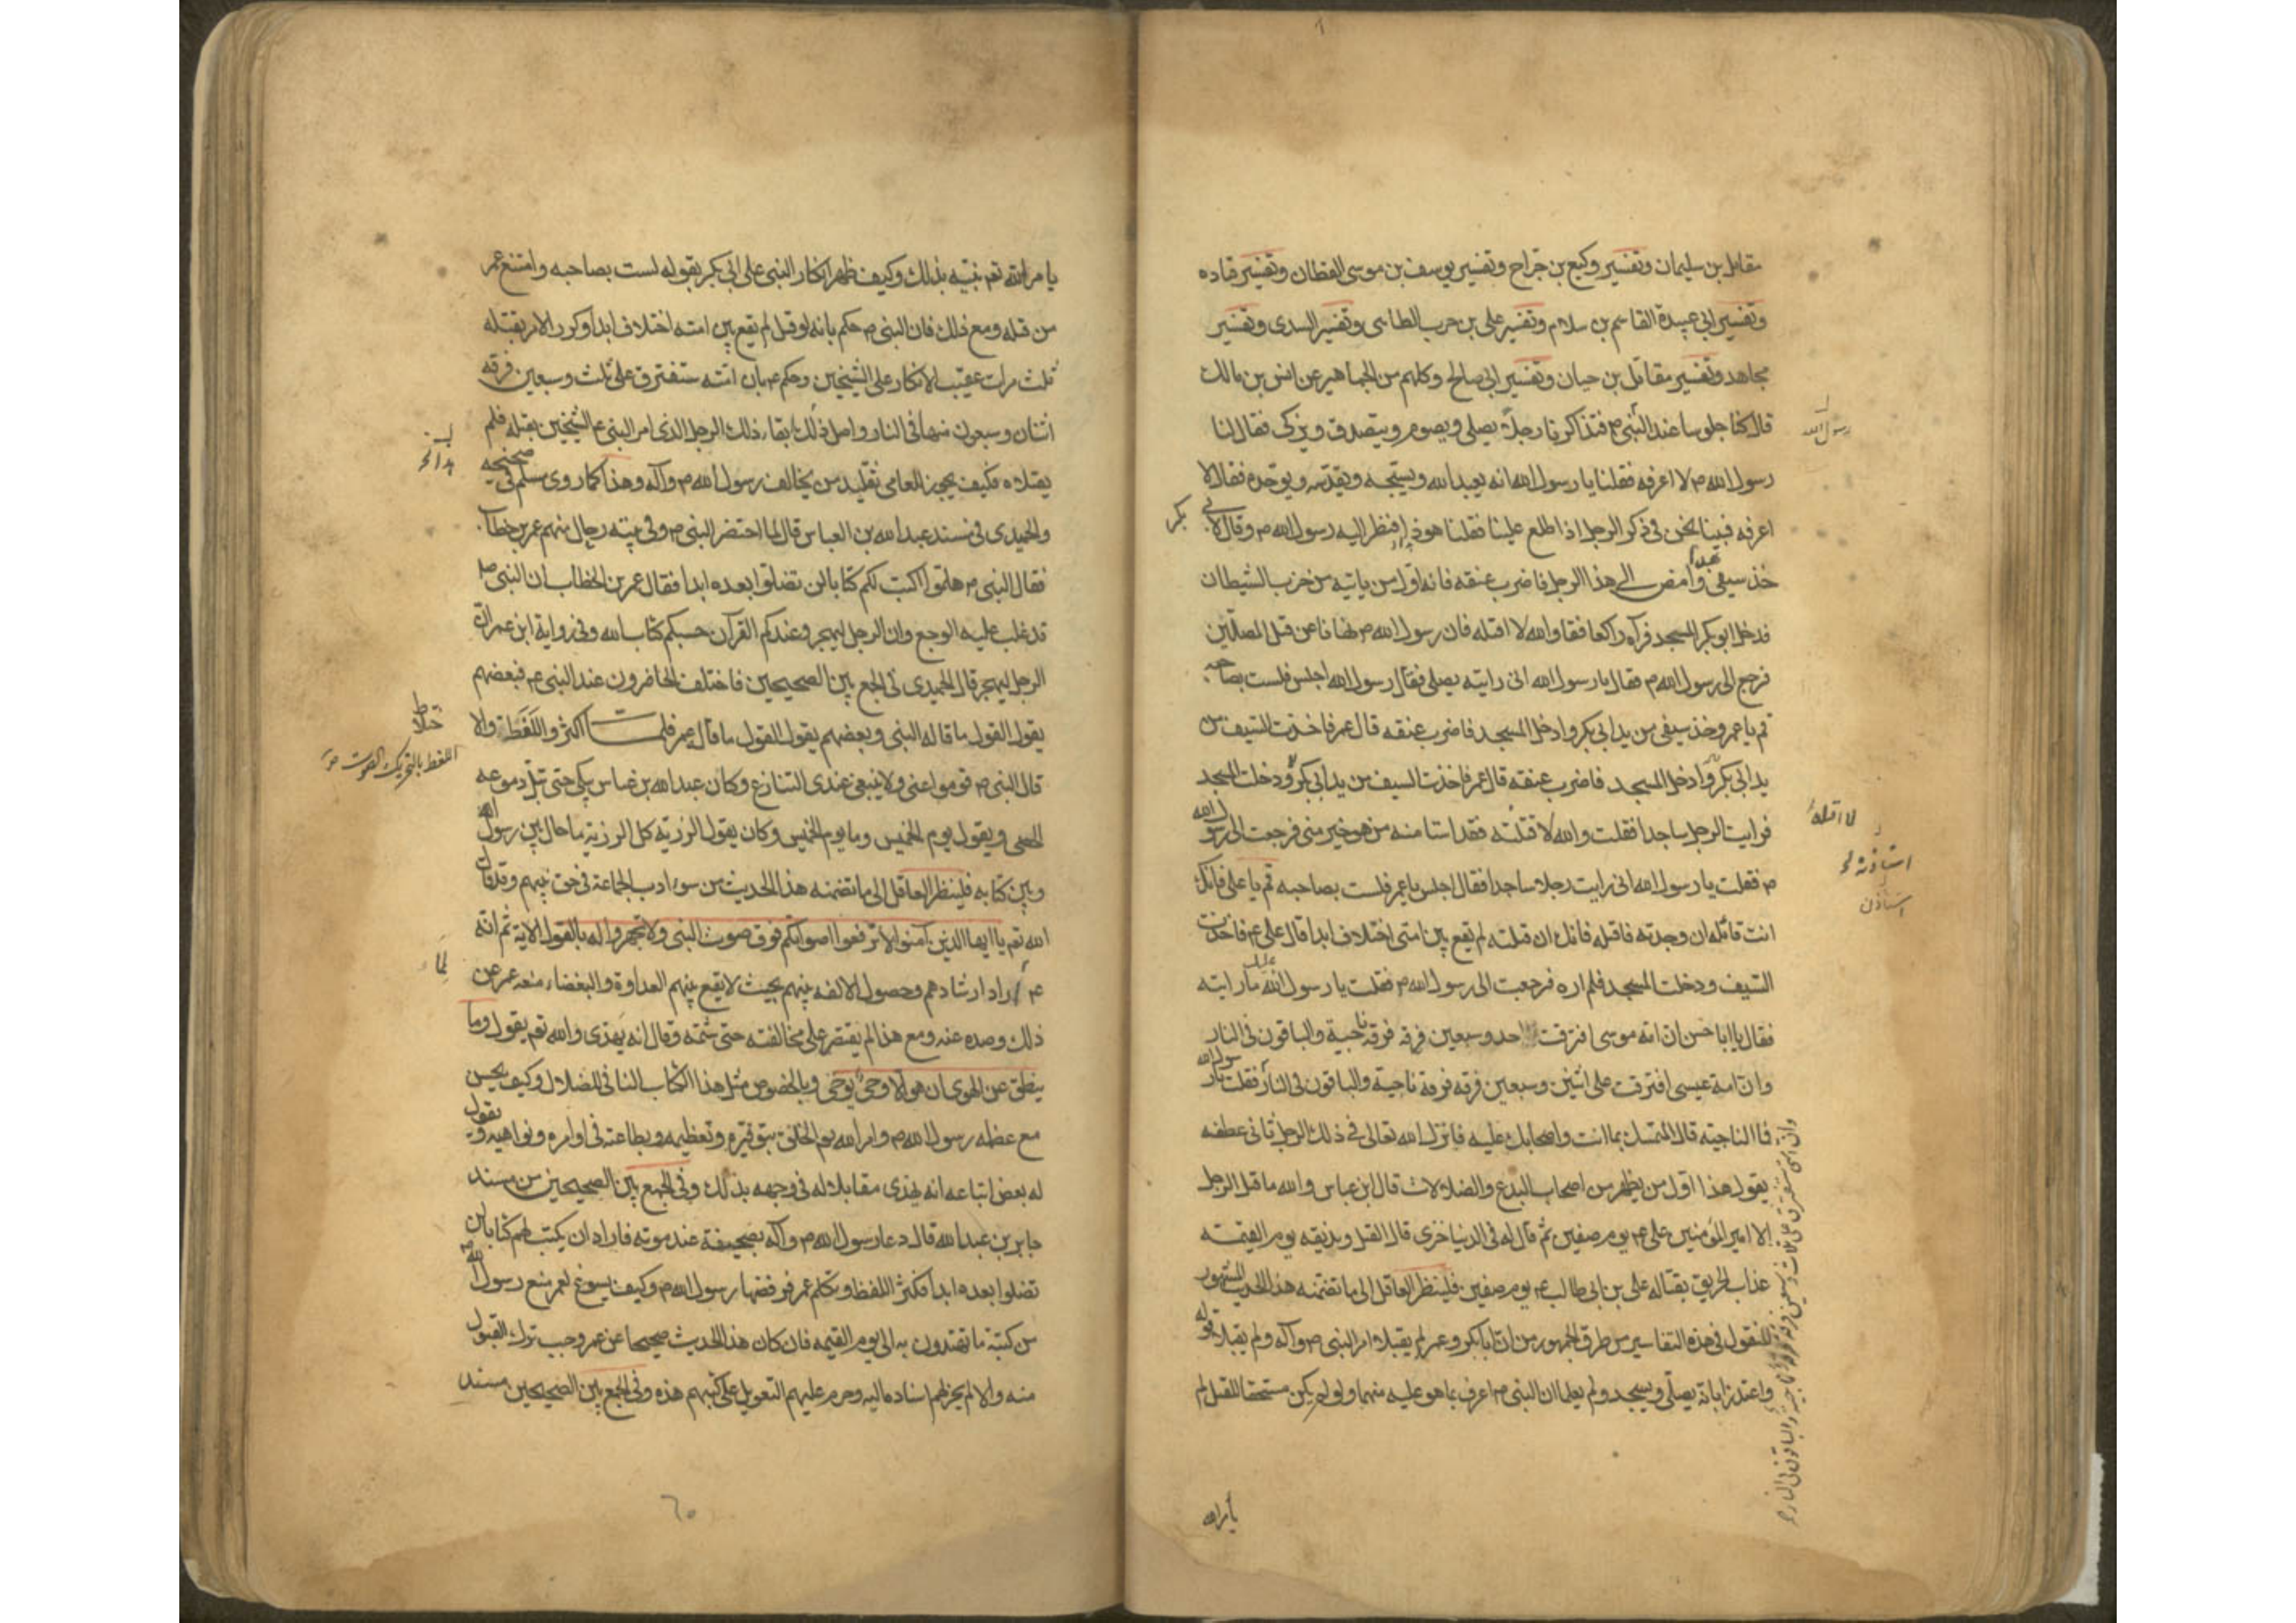 مقاتل بن سليمان وتفسير وكيع بن جراح وتفسير يوسف بن موسى القطان وتفسير قتاده
وتفسير ابى عبيدة القاسم بن سلام وتفسير على بن حرب الطائى وتفسير السدى وتفسير
مجاهد وتفسير مقاتل بن حيان وتفسير ابى صالح وكلهم من الجماهير عن انس بن مالك
قال كنا جلوسا عند النبى ص فتذاكرنا رجلاً يصلى ويصوم ويتصدق ويزكى فقال لنا
رسول الله
رسول الله ص لا اعرفه فقلنا يا رسول الله انه يعبد الله ويسبحه ويقدسه ويوحده فقال لا
اعرفه فبينا نحن فى ذكر الرجل اذا طلع علينا فقلنا هو ذا فنظر اليه رسول الله ص وقال لابى بكر
خذ سيفى هذا وامض الى هذا الرجل فاضرب عنقه فانه اول من ياتيه من حزب الشيطان
فدخل ابو بكر المسجد فرآه راكعا فقا والله لا اقتله فان رسول الله ص نهانا عن قتل المصلين
فرجع الى رسول الله ص فقال يا رسول الله انى رايته يصلى فقال رسول الله اجلس فلست بصاحبه
قم يا عمر وخذ سيفى من يد ابى بكر وادخل المسجد فاضرب عنقه قال عمر فاخذت السيف من
يد ابى بكر وادخل المسجد فاضرب عنقه قال عمر فاخذت السيف من يد ابى بكر ودخلت المسجد
فرايت الرجل ساجدا فقلت والله لا قتلته فقد استا منه من هو خير منى فرجعت الى رسول الله
لا اقتله
استاذنه
استاذن
ص فقلت يا رسول الله انى رايت رجلا ساجدا فقال اجلس يا عمر فلست بصاحبه قم يا على فانك
انت قاتله ان وجدته فاقتله فانك ان قتلته لم تقع بين امتى اختلاف ابدا قال على ع فاخذت
السيف ودخلت المسجد فلم اره فرجعت الى رسول الله ص فقلت يا رسول الله ما رايته
فقال يا ابا حسن ان امة موسى افترقت احد وسبعين فرقه فرقه ناجية والباقون فى النار
وان امة عيسى افترقت على اثنين وسبعين فرقه فرقة ناجية والباقون فى النار فقلت يا رسول الله
وان امتى ستفترق على ثلث وسبعين فرقة فرقة ناجية والباقون فى النار
فما الناجيه قال المتمسك بما انت واصحابك عليه فانزل الله تعالى فى ذلك الرجل ثانى عطفه
يقول هذا اول من يظهر من اصحاب البدع والضلالات قال ابن عباس والله ما قتل الرجل
الا امير المؤمنين على ع يوم صفين ثم قال له فى الدنيا خزى قال القتل ونذيقه يوم القيمة
عذاب الحريق بقتاله على بن ابى طالب ع يوم صفين فلينظر العاقل الى ما تضمنه هذا الحديث المشهور
المنقول فى هذه التفاسير من طرق الجمهور من ان ابا بكر وعمر لم يقبلا امر النبى ص وآله ولم يقبلا قوله
واعتذرا بانه يصلى ويسجد ولم يعلما ان النبى ص اعرف بما هو عليه منهما ولو لم يكن مستحقا للقتل لم
يامر الله
يا مر الله تعم نبيه بذلك وكيف ظهر انكار النبى على ابى بكر بقوله لست بصاحبه وامتنع عمر
من قتله ومع ذلك فان النبى ص حكم بانه لو قتل لم يقع بين امته اختلاف ابدا وكرر الامر بقتله
ثلث مرات عقيب الانكار على الشيخين وحكم ع بان امته ستفترق على ثلث وسبعين فرقه
اثنان وسبعون منها فى النار واصل ذلك ابقاء ذلك الرجل الذى امر النبى ع الشيخين بقتله فلم
يقتلاه فكيف يجوز العامى تقليد من يخالف رسول الله ص وآله وهذا كما روى مسلم فى صحيحه
والحميدى فى مسند عبد الله بن العباس قال لما احتضر النبى ص وفى بيته رجال منهم عمر بن خطاب
فقال النبى ص هلموا اكتب لكم كتابا لن تضلوا بعده ابدا فقال عمر بن الخطاب ان النبى ص
قد غلب عليه الوجع وان الرجل ليهجر وعندكم القرآن حسبكم كتاب الله وفى رواية ابن عمر ان
الرجل ليهجر قال الحميدى فى الجمع بين الصحيحين فاختلف الحاضرون عند النبى ع فبعضهم
يقول القول ما قاله النبى وبعضهم يقول القول ما قال عمر فلما اكثروا اللغط والا
ختلاط
اللغط بالتحريك الصوت
قال النبى ص قوموا عنى ولا ينبغى عندى التنازع وكان عبد الله بن عباس يبكى حتى تبل دموعه
الحصى ويقول يوم الخميس وما يوم الخميس وكان يقول الرزية كل الرزية ما حال بين رسول الله
وبين كتابه فلينظر العاقل الى ما تضمنه هذا الحديث من سوء ادب الجماعة فى حق نبيهم وقد قال
الله تعم يا ايها الذين آمنوا لا ترفعوا اصواتكم فوق صوت النبى ولا تجهروا له بالقول الاية ثم انه
لما
ع اراد ارشادهم وحصول الالفه بينهم بحيث لا يقع بينهم العداوة والبغضاء منعه عمر عن
ذلك وصده عنه ومع هذا لم يقتصر على مخالفته حتى شتمه وقال انه يهذى والله تعم يقول وما
ينطق عن الهوى ان هو الا وحى يوحى وبالخصوص مثل هذا الكتاب النافى للضلال وكيف يحسن
مع عظمه رسول الله ص وامر الله تعم الخلق بتوقيره وتعظيمه وبطاعته فى اوامره ونواهيه ويقول
له بعض اتباعه انه يهذى مقابلا له فى وجهه بذلك وفى الجمع بين الصحيحين من مسند
جابر بن عبد الله قال دعا رسول الله ص وآله بصحيفة عند موته فاراد ان يكتب لهم كتابا لن
تضلوا بعده ابدا فكثر اللغط وتكلم عمر فرفضها رسول الله ص وكيف يسوغ لعمر منع رسول الله ص
من كتبة ما تهتدون به الى يوم القيمه فان كان هذا الحديث صحيحا عن عمر وجب ترك القبول
منه والا لم يجز لهم اسناده اليه وحرم عليهم التعويل على كتبهم هذه وفى الجمع بين الصحيحين مسند
٦٠